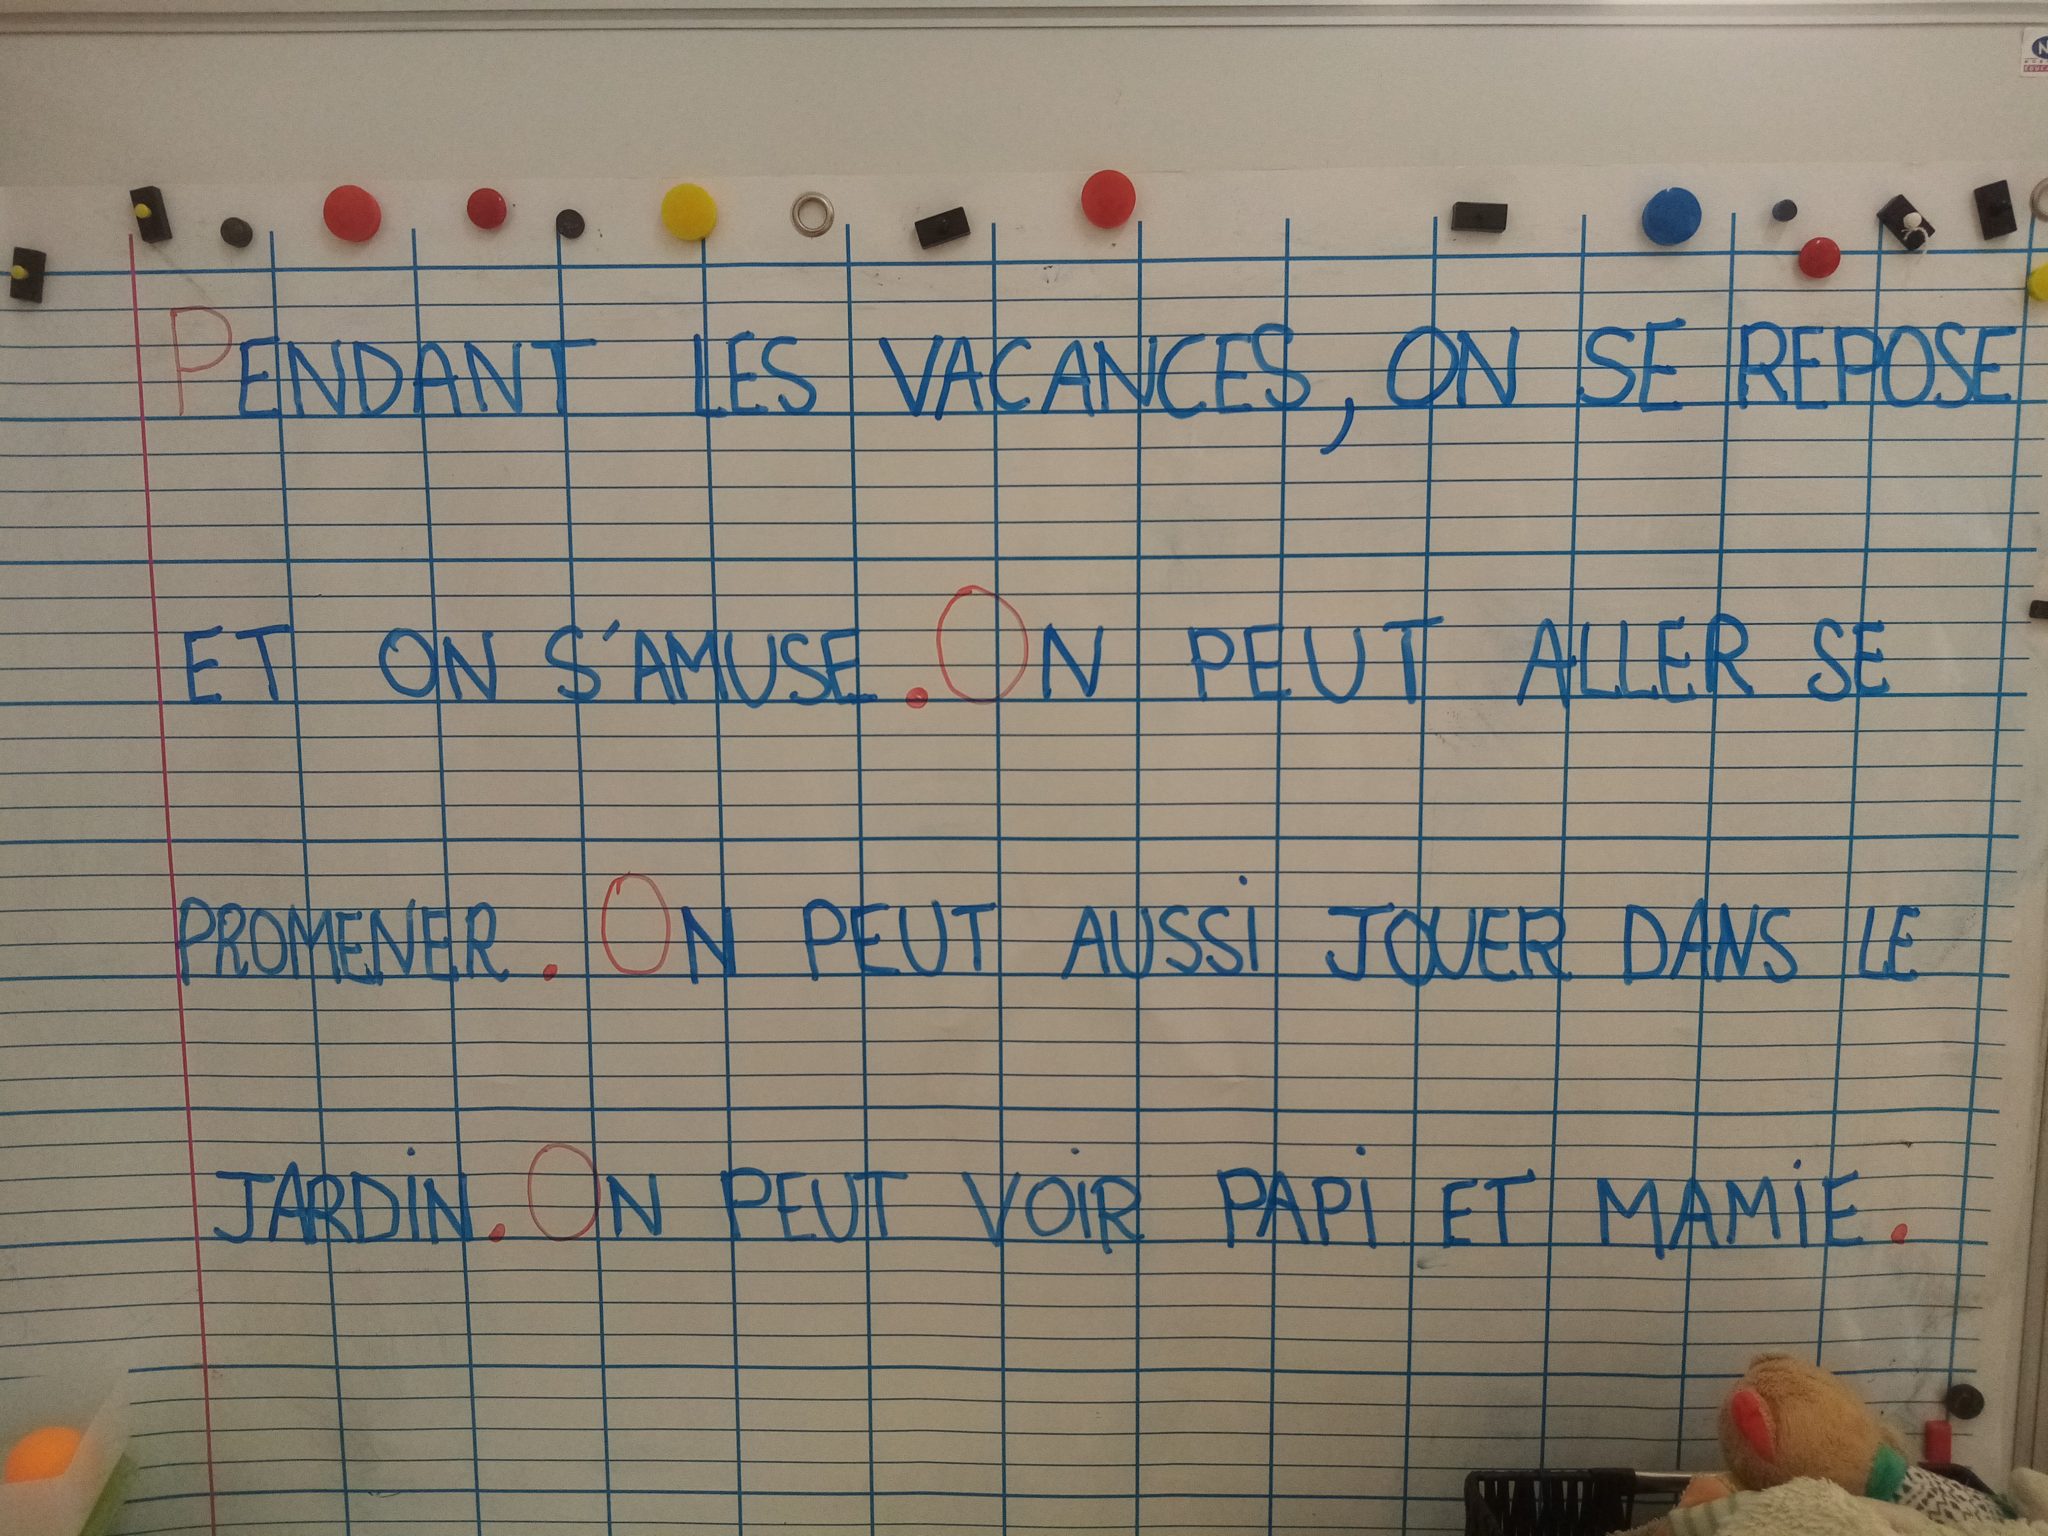 PENDANT LES VACANCES, ON SE REPOSE
ET ON S'AMUSE. ON PEUT ALLER SE
PROMENER. ON PEUT AUSSi JOUER DANS LE
JARDiN. ON PEUT VOiR PAPi ET MAMiE.